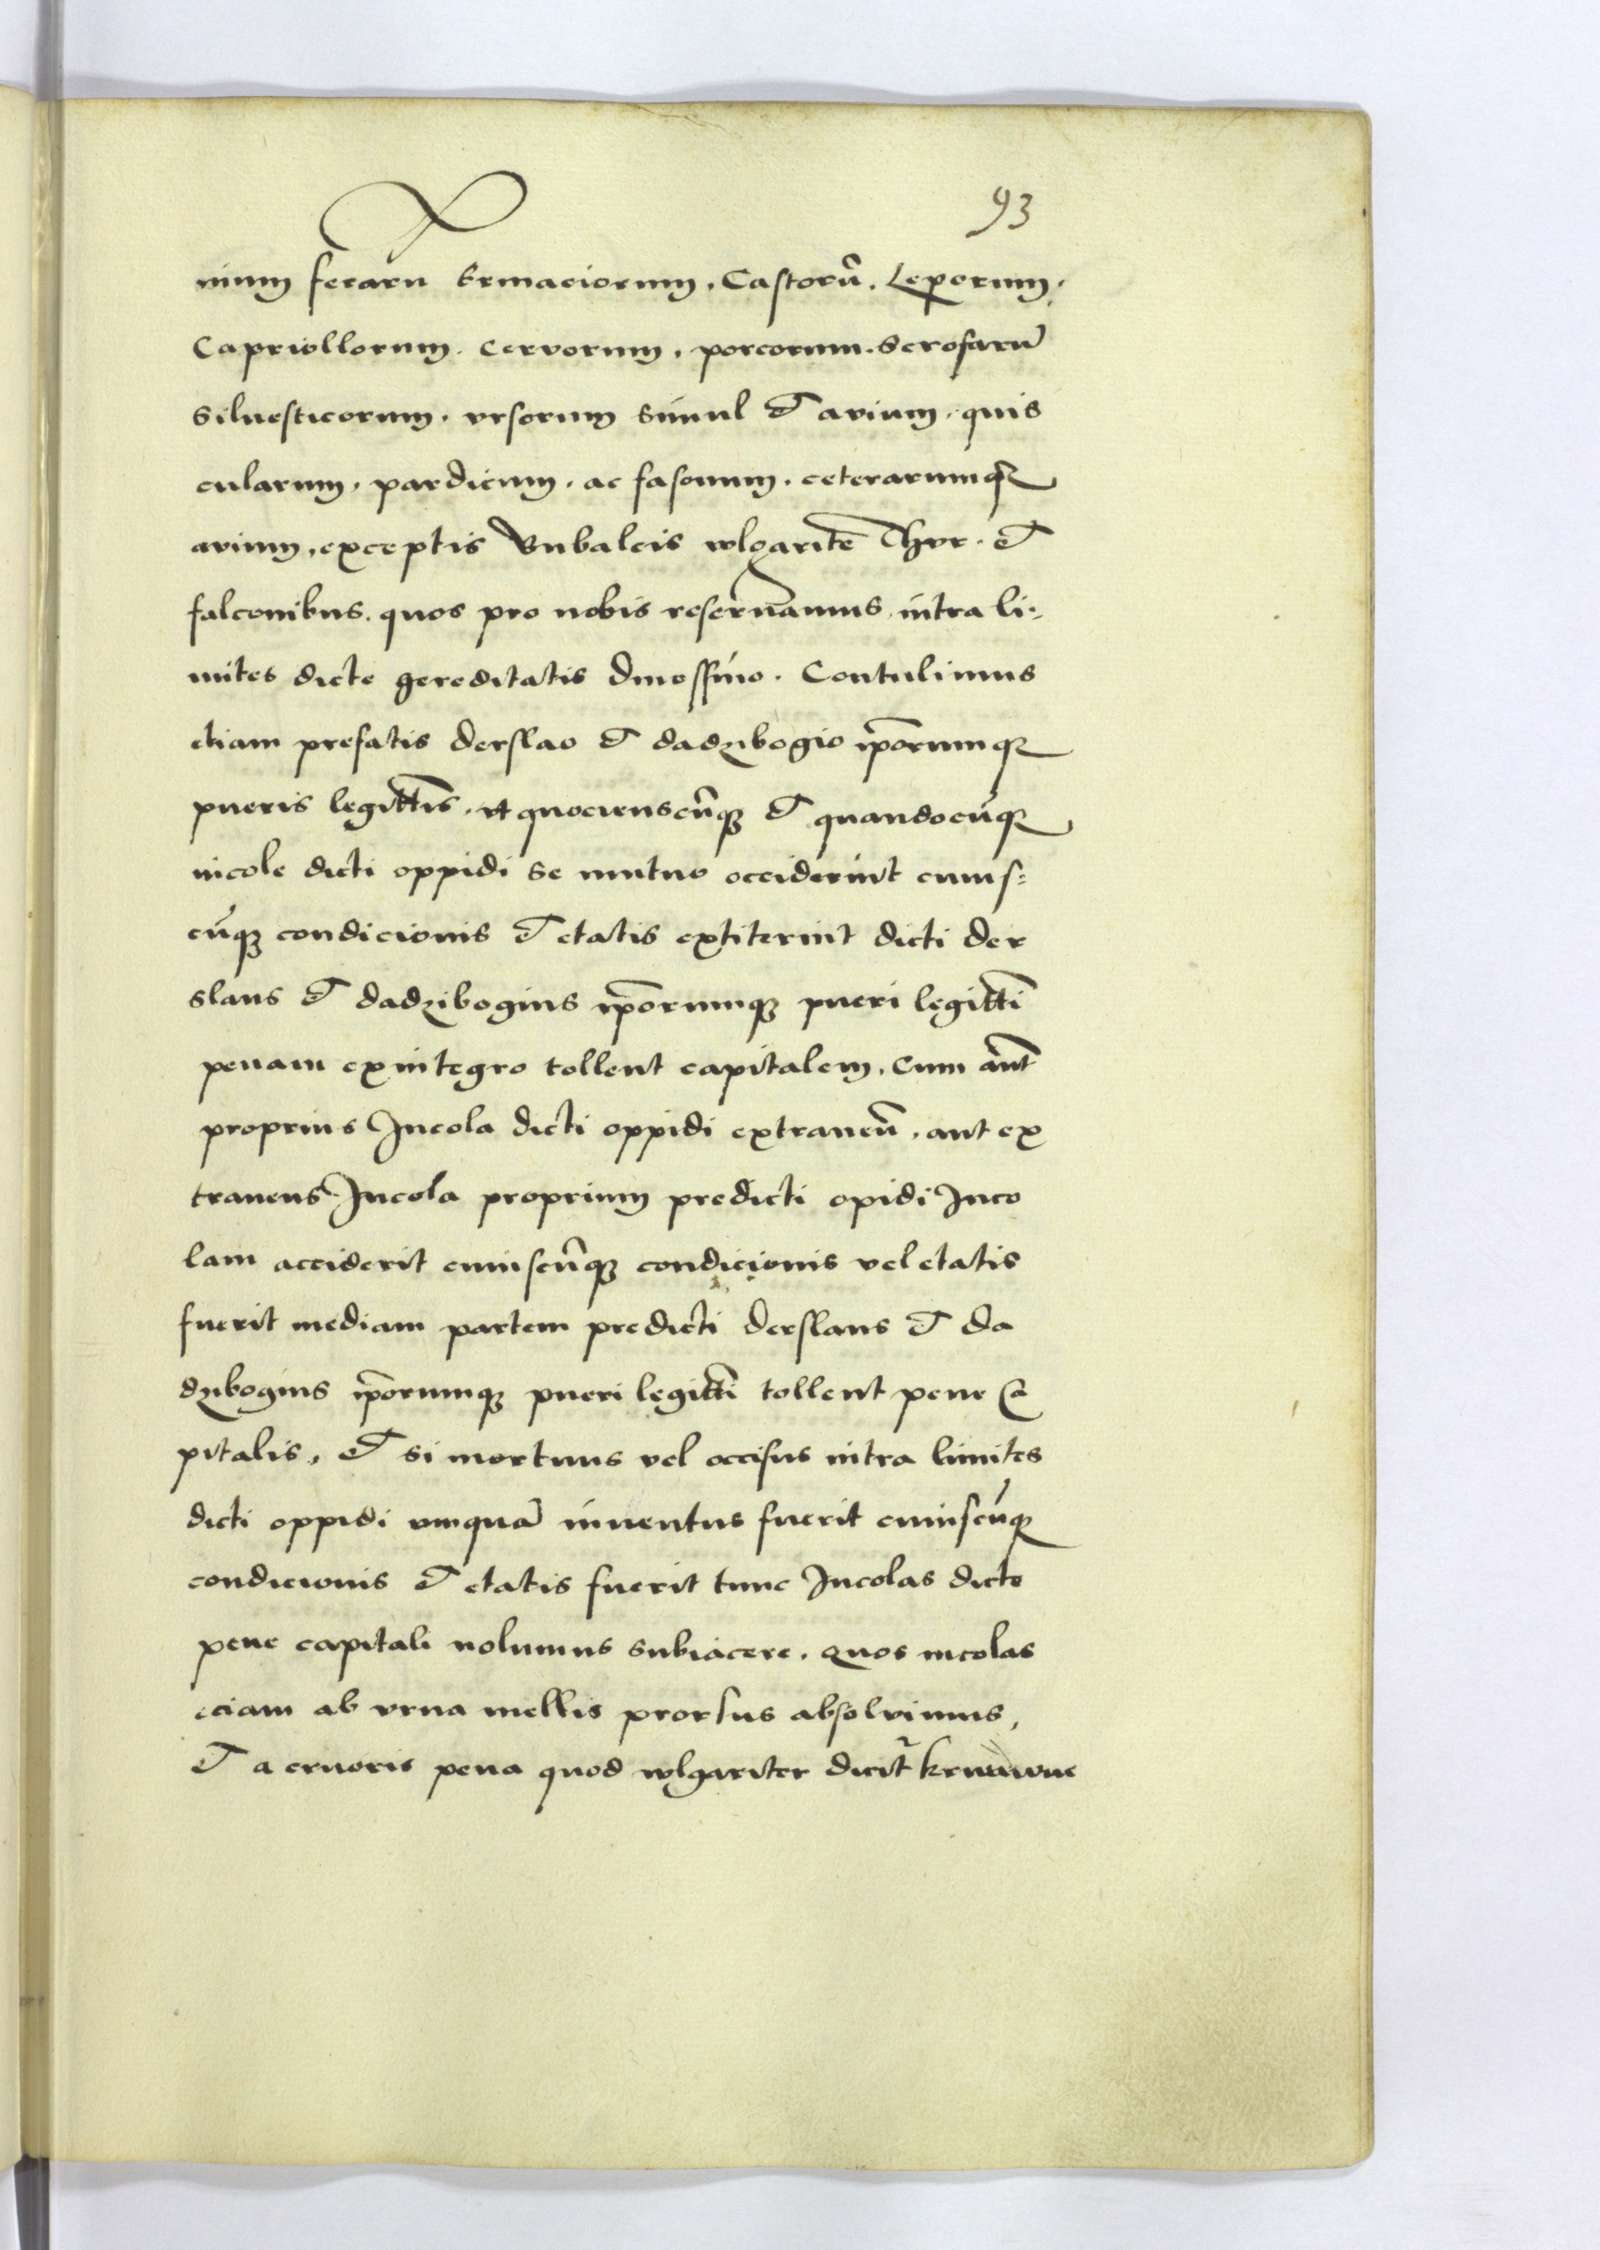 93
nium feraru Ermaciorum. Castorū. Leporum.
Capriollorum. cervorum. porcorum. scrofarū
siluesticorum. vrsorum simul et avium. quis
cularum. pardicum. ac fasonum. ceterarumqȝ
avium. exceptis Bubalcis wlgarite͂ Thvr. et
falconibus. quos pro nobis reseruamus. intra li-
mites dicte hereditatis dmossino. Contulimus
etiam prefatis derslao et dadzibogio ip̄orumqȝ
pueris legitt͂is. vt quocienscūqȝ et quandocūqȝ
incole dicti oppidi se mutuo occiderint cuius-
cūqȝ condicionis et etatis extiterint dicti der
slaus et dadzibogius ip̄orumqȝ pueri legitt͂i
penam ex integro tollent capitalem. Cum aūt
proprius Incola dicti oppidi extraneū. aut ex
traneus Incola proprium predicti opidi Inco
lam acciderit cuiuscūqȝ condicionis vel etatis
fuerit mediam partem predicti derslaus et da
dzibogius ip̄orumqȝ pueri legitt͂i tollent pene Ca
pitalis. et si mortuus vel occisus intra limites
dicti oppidi vmquā inuentus fuerit cuiuscūqȝ
condicionis et etatis fuerit tunc Incolas dicte
pene capitali nolumus subiacere. quos incolas
eciam ab vrna mellis prorsus absolvimus,
et a cruoris pena quod wlgariter dicit͂